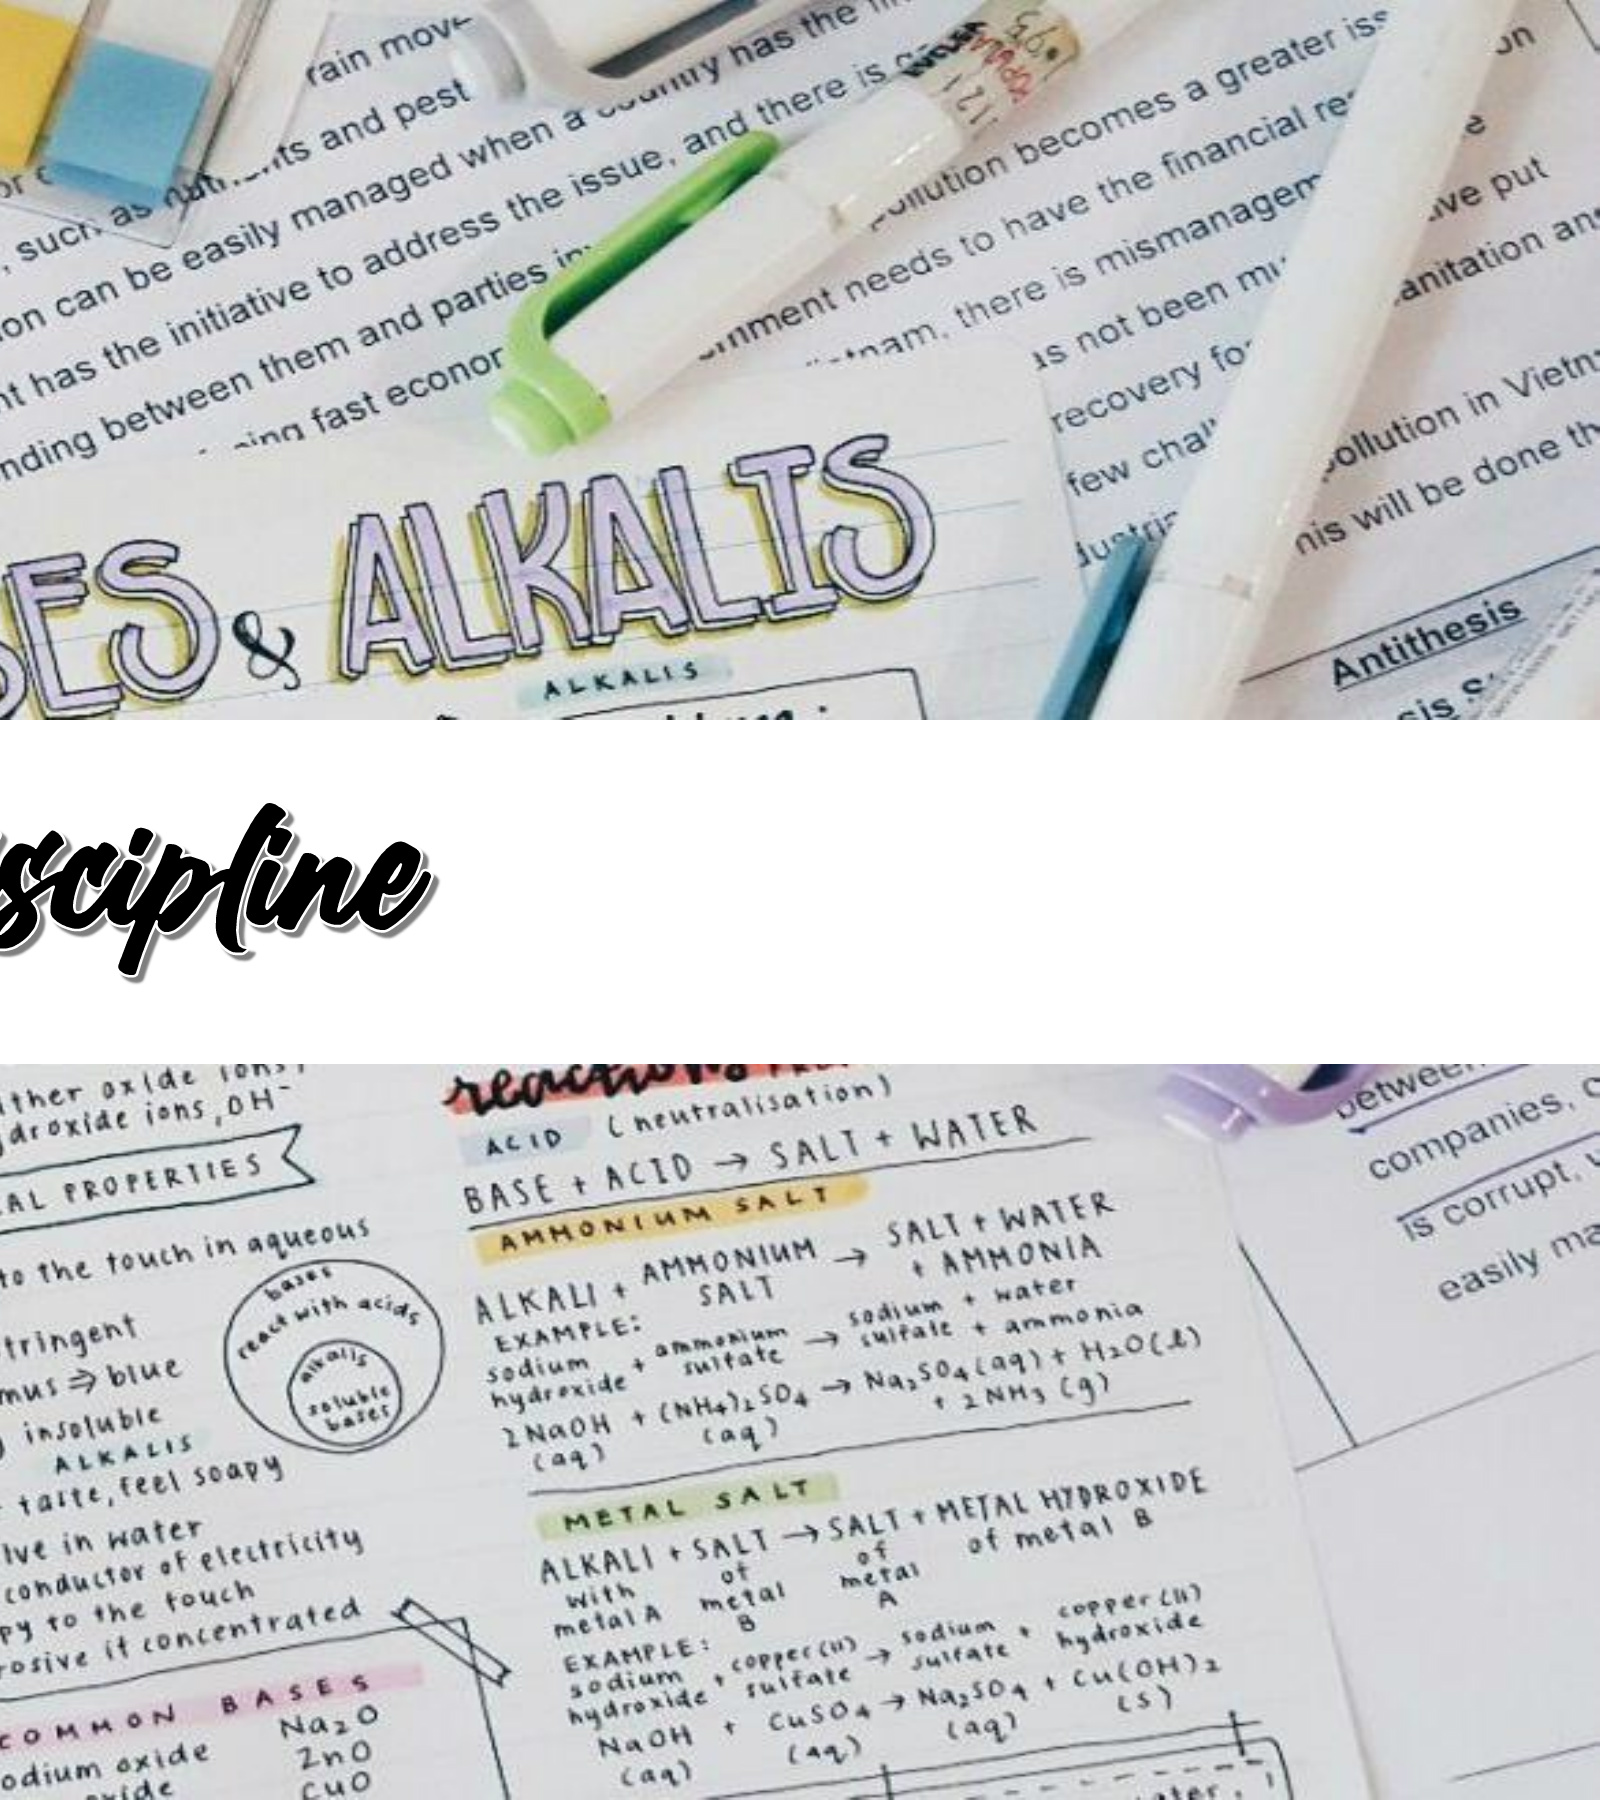 rain move
such as nutrients and pest
ion can be easily managed when a country has the
nt has the initiative to address the issue, and there is
nding between them and parties
fast econor
pollution becomes a greater
needs to have the financial
there is mismanagem
as not been
recovery
few
ive put
sanitation
pollution in
this will be done
Antithesis
& ALKALIS
ALKALIS
scipline
ither oxide ions,
droxide ions, OH⁻
AL PROPERTIES
to the touch in aqueous
tringent
mus ⇒ blue
insoluble
ALKALIS
taste, feel soapy
lve in water
conductor of electricity
py to the touch
rosive if concentrated
COMMON BASES
odium oxide Na₂O
ZnO
xide CuO
bases
react with acids
alkalis
soluble
bases
reactions
ACID (neutralisation)
BASE + ACID → SALT + WATER
AMMONIUM SALT
ALKALI + AMMONIUM SALT → SALT + WATER + AMMONIA
EXAMPLE:
sodium hydroxide + ammonium sulfate → sodium sulfate + water + ammonia
2NaOH (aq) + (NH₄)₂SO₄ (aq) → Na₂SO₄(aq) + H₂O(l) + 2NH₃(g)
METAL SALT
ALKALI + SALT → SALT + METAL HYDROXIDE
with metal A of metal B of metal A of metal B
EXAMPLE:
sodium hydroxide + copper(II) sulfate → sodium sulfate + copper(II) hydroxide
NaOH (aq) + CuSO₄ (aq) → Na₂SO₄ (aq) + Cu(OH)₂ (s)
between
companies,
is corrupt,
easily